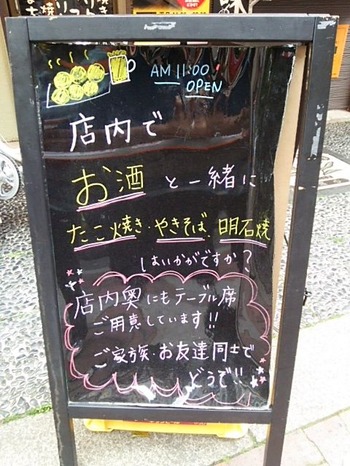 AM 11:00
OPEN
店内で
お酒と一緒に
たこ焼き・やきそば、明石焼
はいかがですか?
店内奥にもテーブル席
ご用意しています!!
ご家族・お友達同士で
どうぞ!!